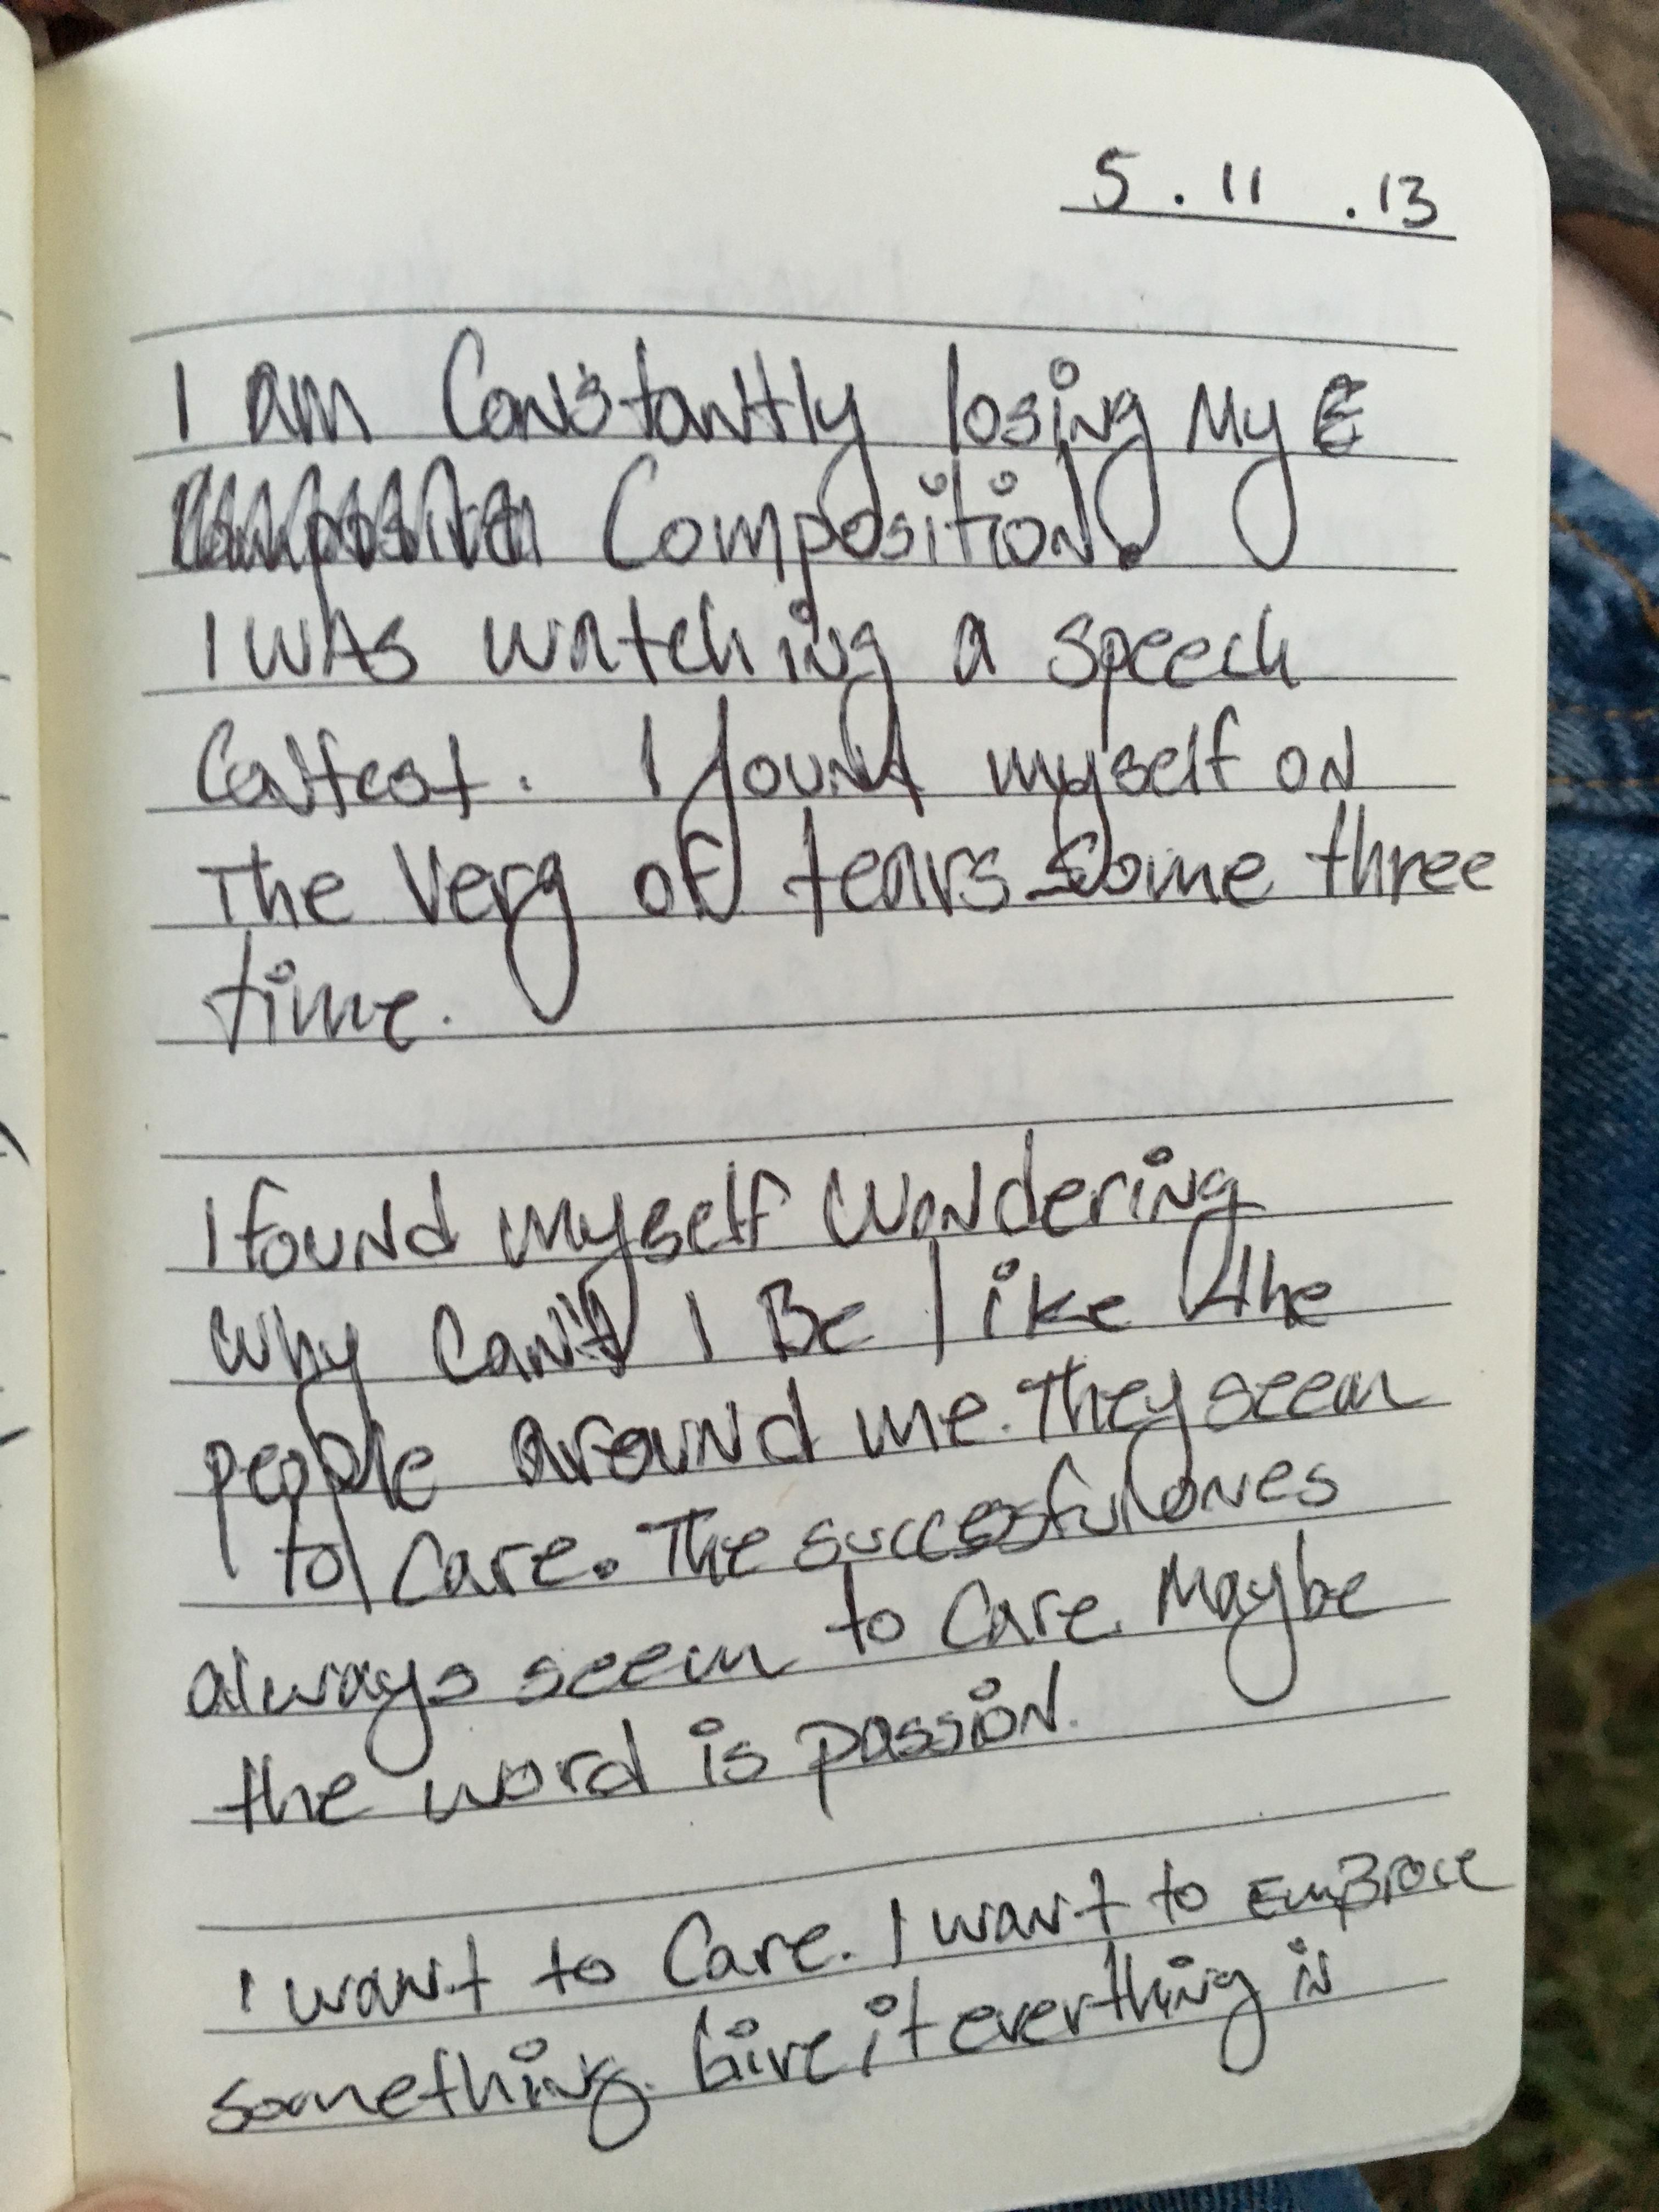 5 . 11 . 13
I am Constantly losing My E
Composition.
I was watching a speech
Contest. I found myself on
The Verg of tears some three
time.
I found myself wondering
why can't I Be like the
people around me. They seem
to care. The successful ones
always seem to care. Maybe
the word is passion.
I want to Care. I want to EmBrace
something. Give it everthing in